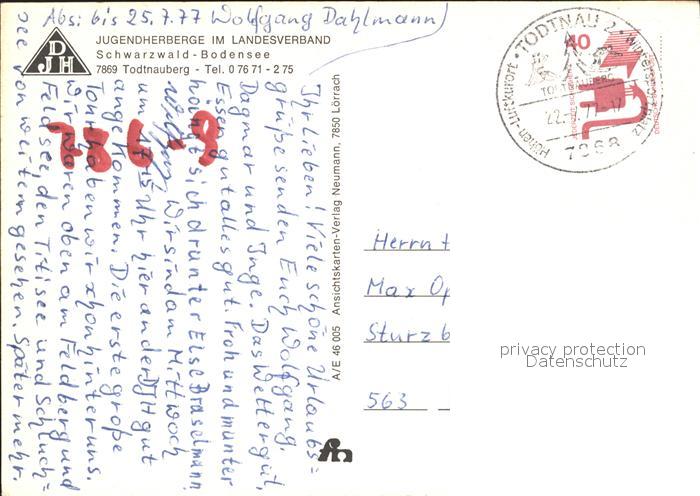 Abs: bis 25.7.77 Wolfgang Dahlmann
DJH
JUGENDHERBERGE IM LANDESVERBAND
Schwarzwald - Bodensee
7869 Todtnauberg - Tel. 0 76 71 - 2 75
Ihr Lieben! Viele schöne Urlaubs=
grüße senden Euch Wolfgang,
Dagmar und Inge. Das Wetter gut,
Essen gut alles gut. Froh und munter
hängt sich drunter Else Braselmann
Wir sind am Mittwoch
um 17.15 Uhr hier an der DJH gut
angekommen. Die erste große
Tour haben wir schon hinter uns.
Wir waren oben am Feldberg und
Feldsee, den Titisee und Schluch=
see von weitem gesehen. Später mehr.
A/E 46 005 Ansichtskarten-Verlag Neumann, 7850 Lörrach
TODTNAU 2
Höhen-Luftkurort
TODTNAUBERG
7868
40
Herrn +
Max Op
Sturzb
563
privacy protection
Datenschutz